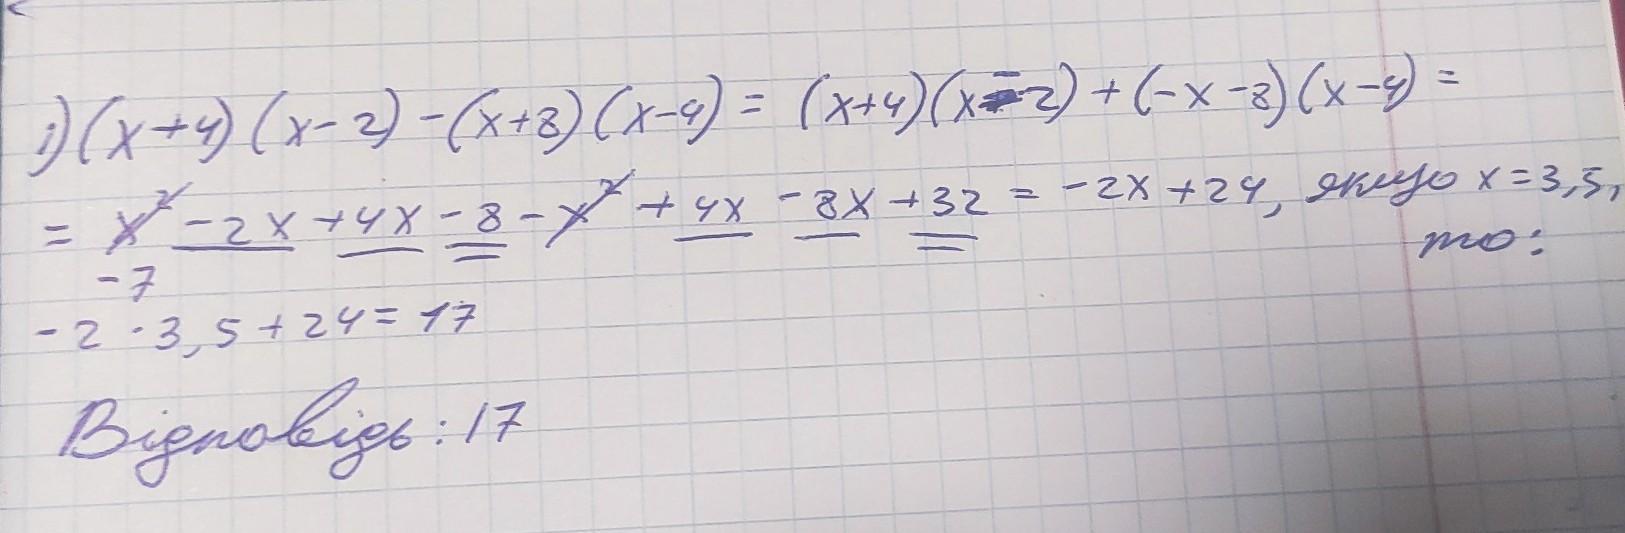 1) (x+4)(x-2)-(x+8)(x-4)=(x+4)(x-2)+(-x-8)(x-4)=
=x²-2x+4x-8-x²+4x-8x+32=-2x+24, якщо x=3,5,
то:
-7
-2·3,5+24=17
Відповідь: 17